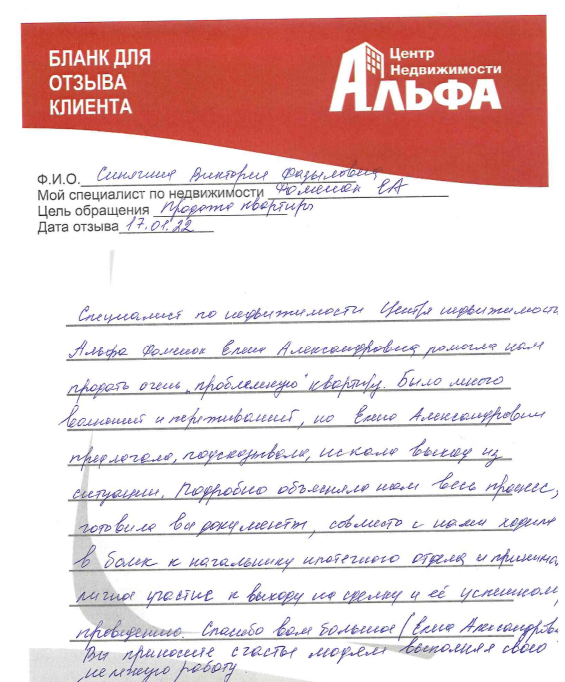 БЛАНК ДЛЯ
ОТЗЫВА
КЛИЕНТА
Центр
Недвижимости
АЛЬФА
Ф.И.О. Синячина Виктория Фазыловна
Мой специалист по недвижимости Фоменок ЕА
Цель обращения Продажа квартиры
Дата отзыва 17.01.22
Специалист по недвижимости Центра недвижимость
Альфа Фоменок Елена Александровна помогла нам
продать очень „проблемную" квартиру. Было много
волнений и переживаний, но Елена Александровна
предлагала, подсказывала, искала выход из
ситуации. Подробно объясняла нам весь процесс,
готовила все документы, совместо с нами ходила
в банк к начальнику ипотечного отдела и принима
личное участие к выходу на сделку и её успешном
проведению. Спасибо вам большое (Елена Александров
Вы приносите счастье людям выполняя свою
нелёгкую работу.